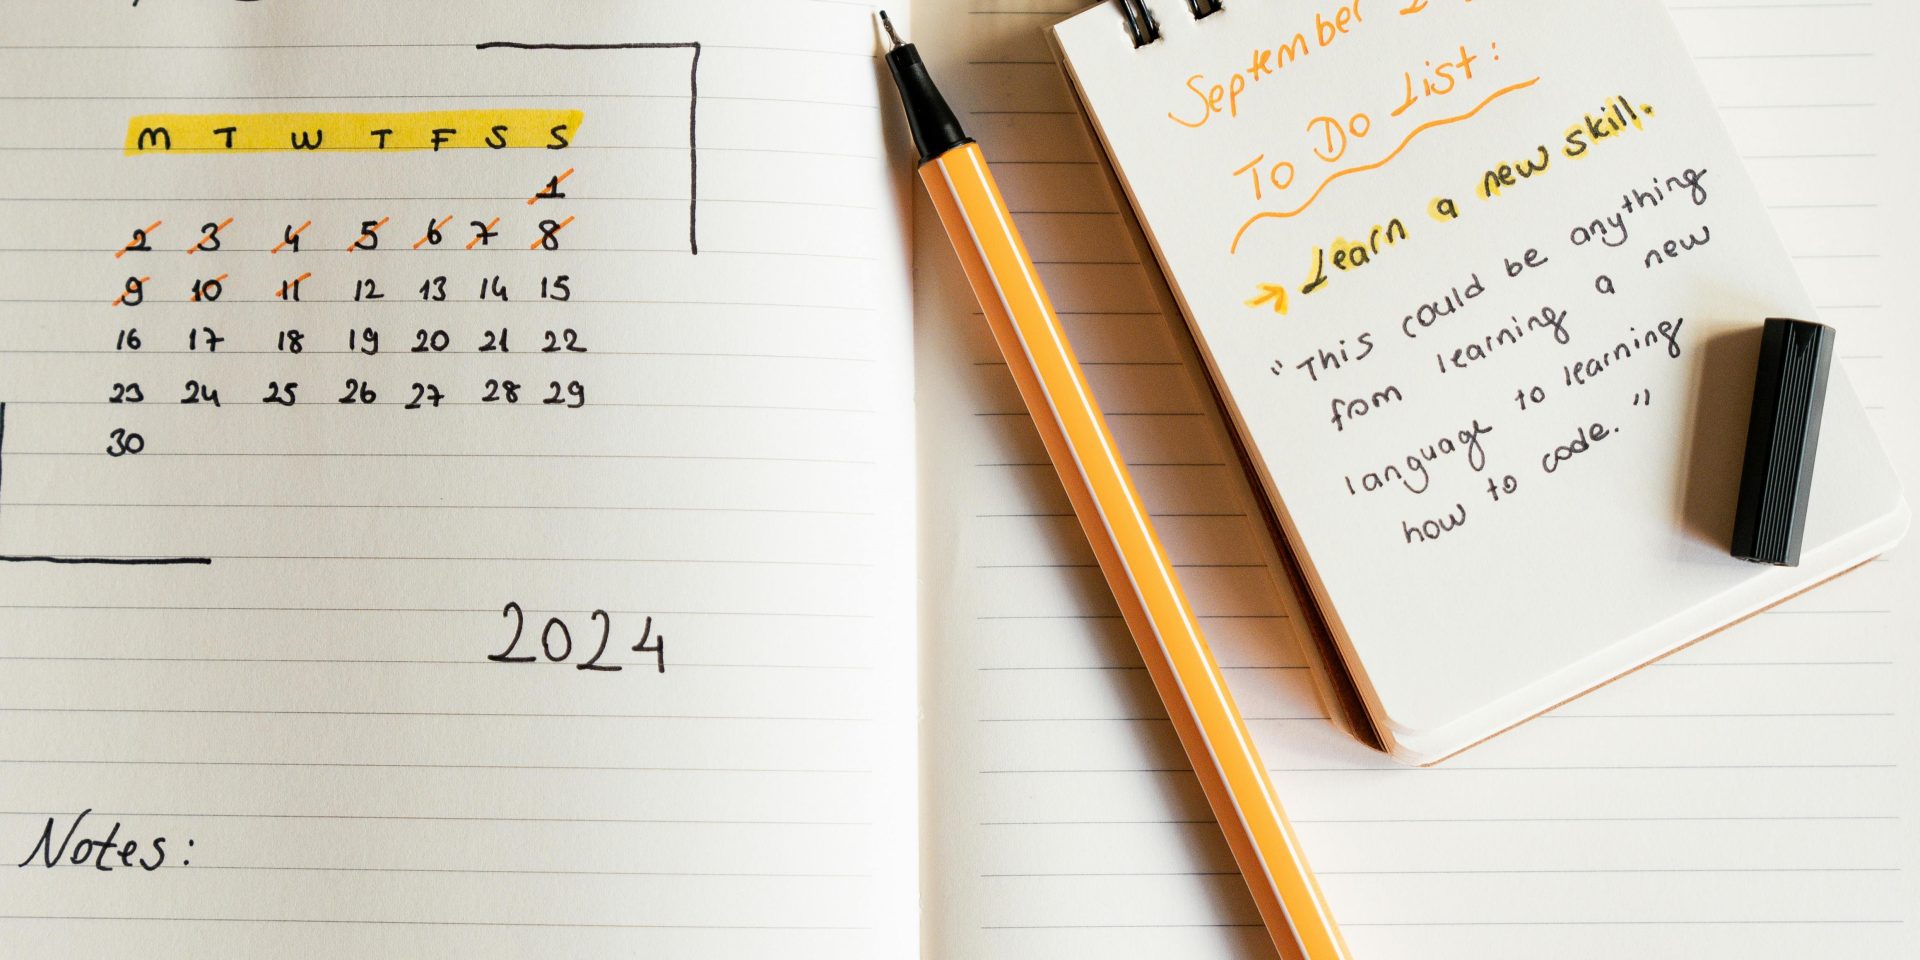 M T W T F S S
1
2 3 4 5 6 7 8
9 10 11 12 13 14 15
16 17 18 19 20 21 22
23 24 25 26 27 28 29
30
2024
Notes:
September
To Do List:
→ Learn a new skill.
"This could be anything
from learning a new
language to learning
how to code."